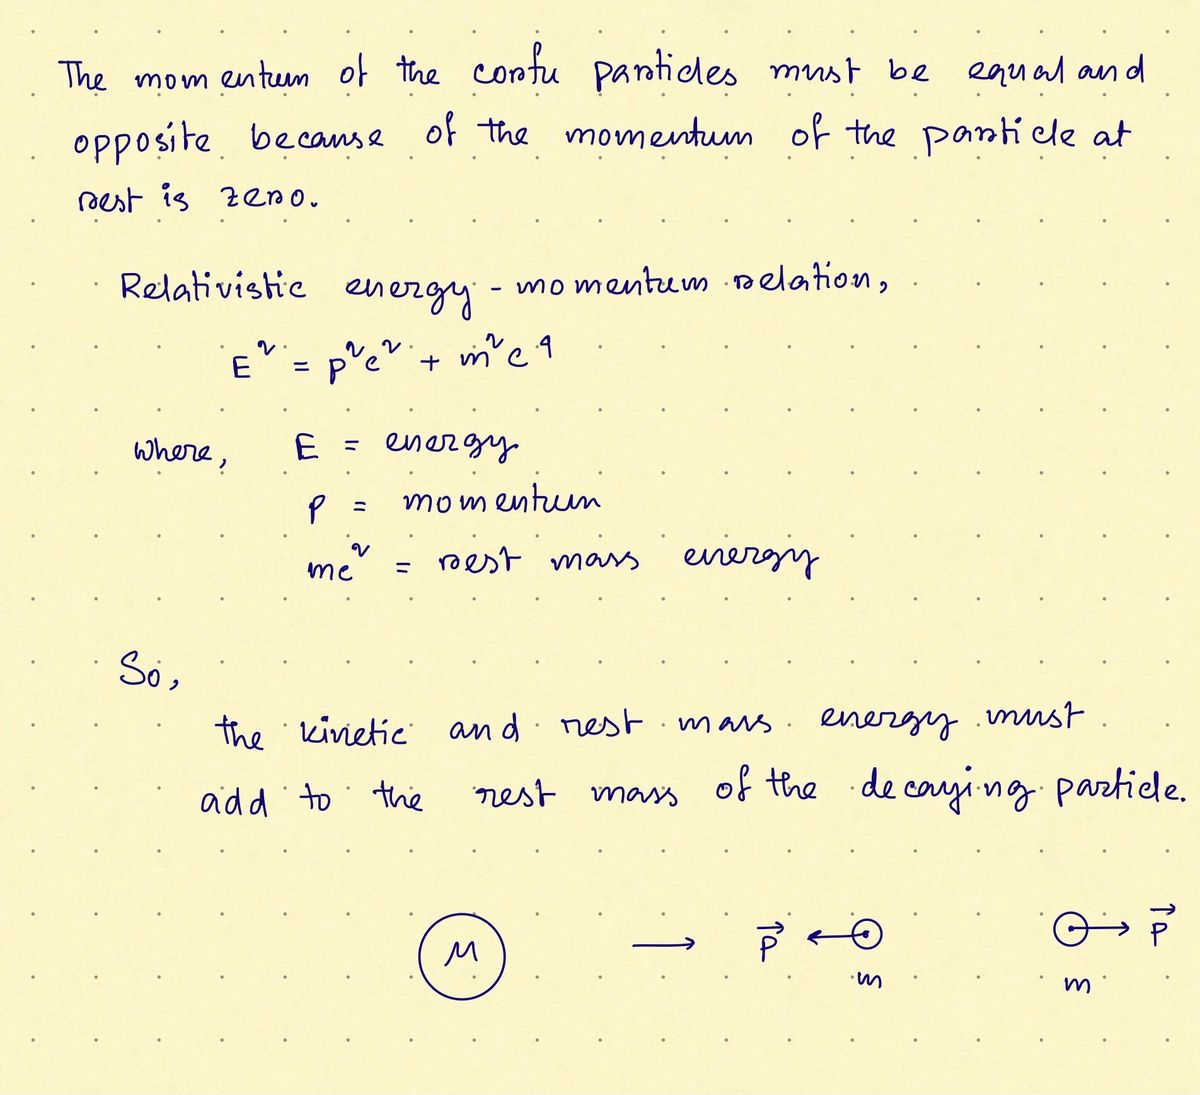 The momentum of the confu particles must be equal and
opposite because of the momentum of the particle at
rest is zero.
Relativistic energy - momentum relation,
E² = p²c² + m²c⁴
where, E = energy
p = momentum
mc² = rest mass energy
So,
the kinetic and rest mass energy must
add to the rest mass of the decaying particle.
M → p⃗ m m p⃗